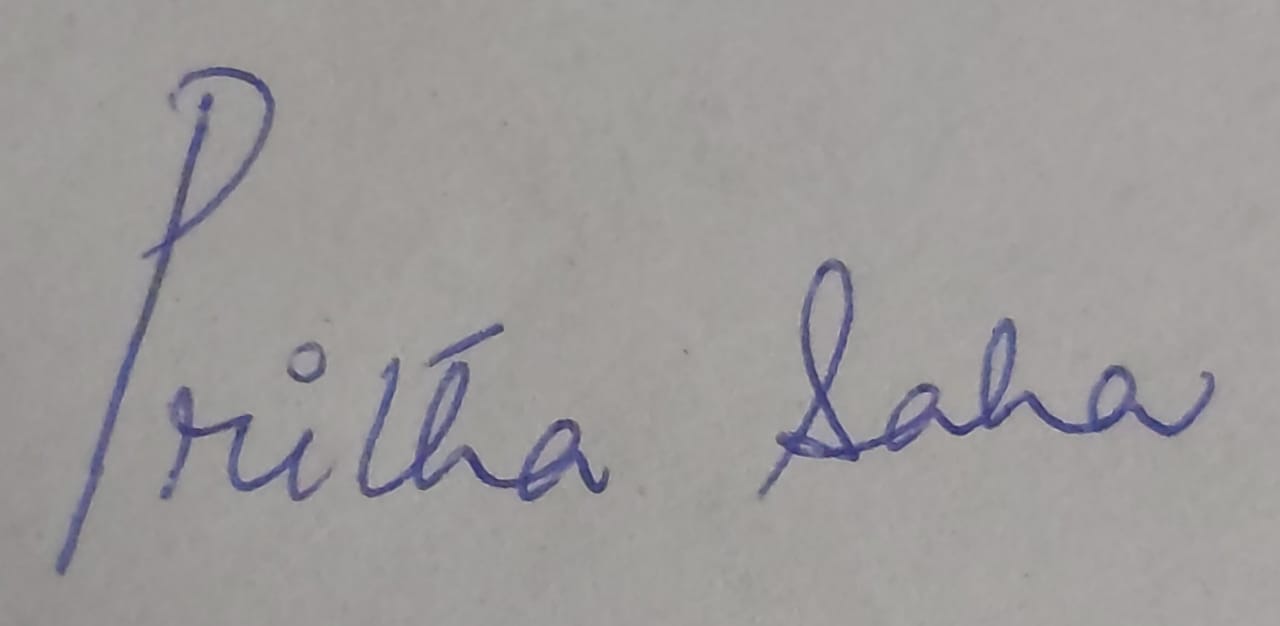 Pritha Saha